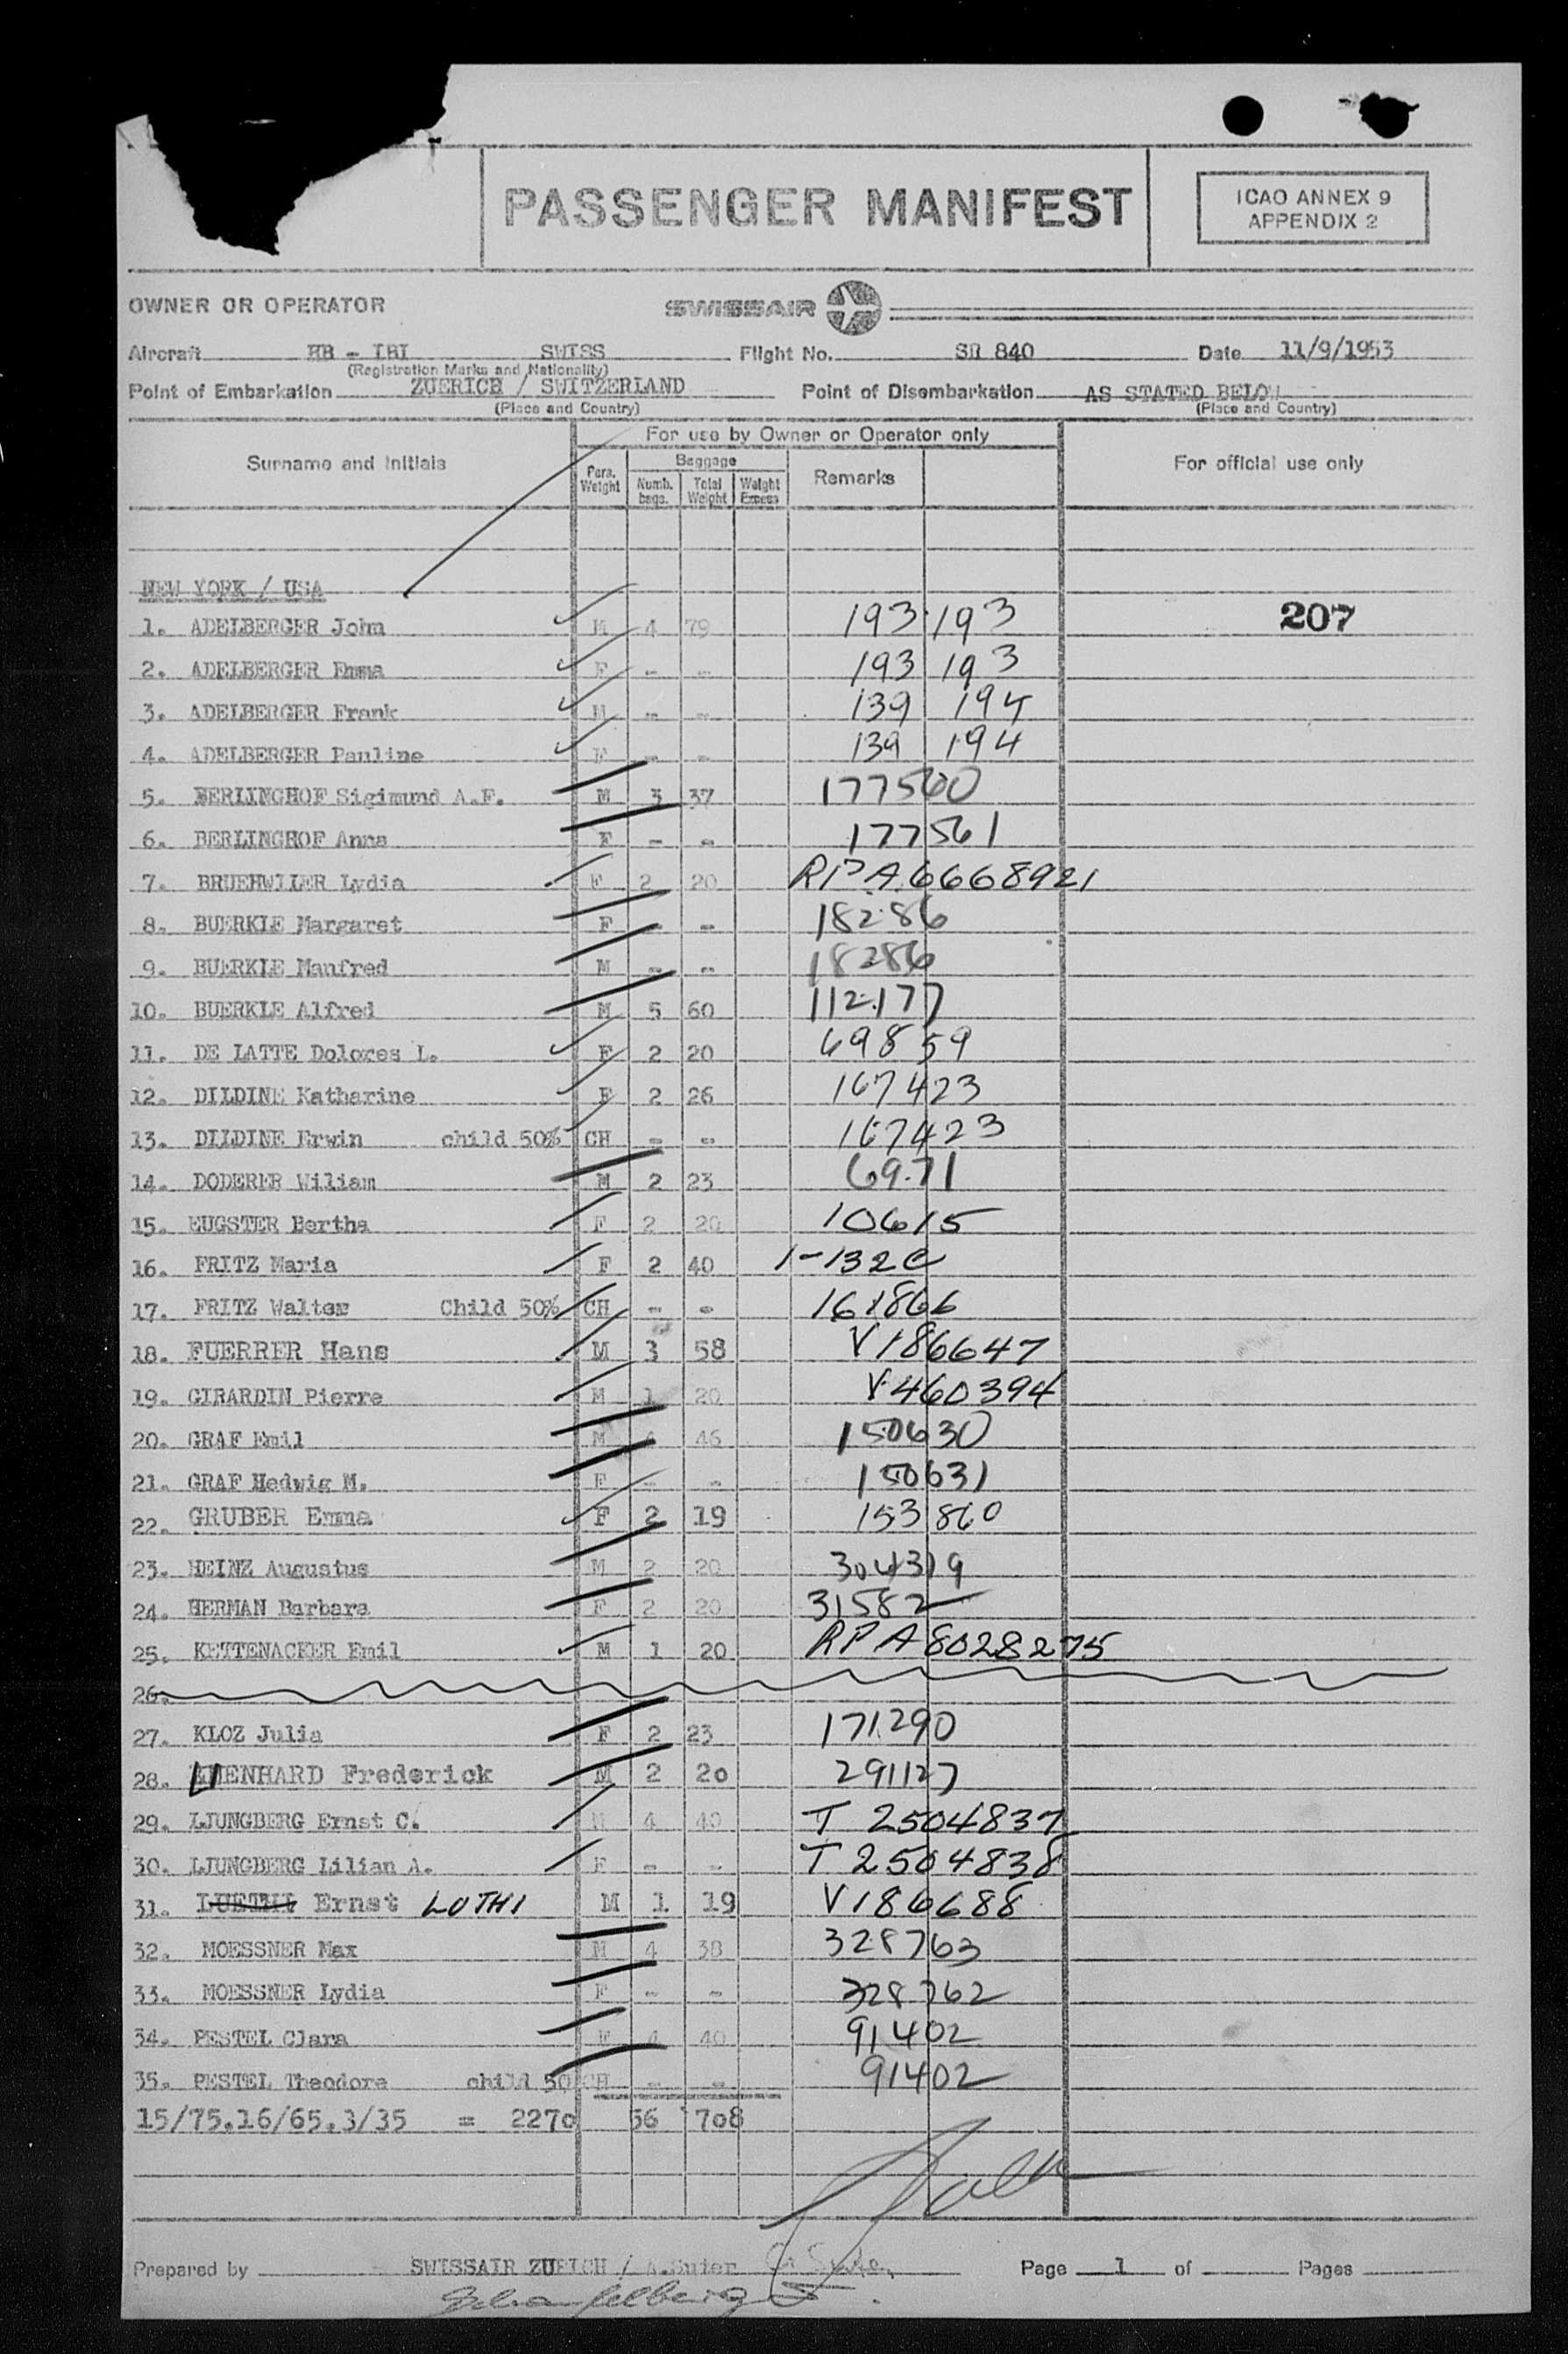 PASSENGER MANIFEST
ICAO ANNEX 9
APPENDIX 2
OWNER OR OPERATOR SWISSAIR
Aircraft HB - IBI SWISS Flight No. SR 840 Date 11/9/1953
(Registration Marks and Nationality)
Point of Embarkation ZUERICH / SWITZERLAND Point of Disembarkation AS STATED BELOW
(Place and Country) (Place and Country)
For use by Owner or Operator only
Surname and Initials Pers. Weight Baggage Numb. bags. Total Weight Weight Excess Remarks For official use only
NEW YORK / USA
1. ADELBERGER John M 4 79 193 193 207
2. ADELBERGER Emma F - - 193 193
3. ADELBERGER Frank M - - 139 194
4. ADELBERGER Pauline F - - 139 194
5. BERLINGHOF Sigimund A.F. M 3 37 177560
6. BERLINGHOF Anna F - - 177561
7. BRUEHWILER Lydia F 2 20 RPA 6668921
8. BUERKLE Margaret F - - 18286
9. BUERKLE Manfred M - - 18286
10. BUERKLE Alfred M 5 60 112177
11. DE LATTE Dolores L. F 2 20 69859
12. DILDINE Katharine F 2 26 167423
13. DILDINE Erwin child 50% CH - - 167423
14. DODERER Wiliam M 2 23 69.71
15. EUGSTER Bertha F 2 20 10615
16. FRITZ Maria F 2 40 1-132C
17. FRITZ Walter Child 50% CH - - 161866
18. FUERRER Hans M 3 58 V186647
19. GIRARDIN Pierre M 1 20 V460394
20. GRAF Emil M 4 46 150630
21. GRAF Hedwig M. F - - 150631
22. GRUBER Emma F 2 19 153860
23. HEINZ Augustus M 2 20 304319
24. HERMAN Barbara F 2 20 31582
25. KETTENACKER Emil M 1 20 RPA 8028275
26.
27. KLOZ Julia F 2 23 171290
28. LIENHARD Frederick M 2 20 291127
29. LJUNGBERG Ernst C. M 4 40 T 2504837
30. LJUNGBERG Lilian A. F - - T 2504838
31. LUETHI Ernst LUTHI M 1 19 V186688
32. MOESSNER Max M 4 38 328763
33. MOESSNER Lydia F - - 328762
34. PESTEL Clara F 4 40 91402
35. PESTEL Theodore child 50 CH - - 91402
15/75.16/65.3/35 = 2270 56 708
Prepared by SWISSAIR ZURICH / A.Suter Page 1 of Pages